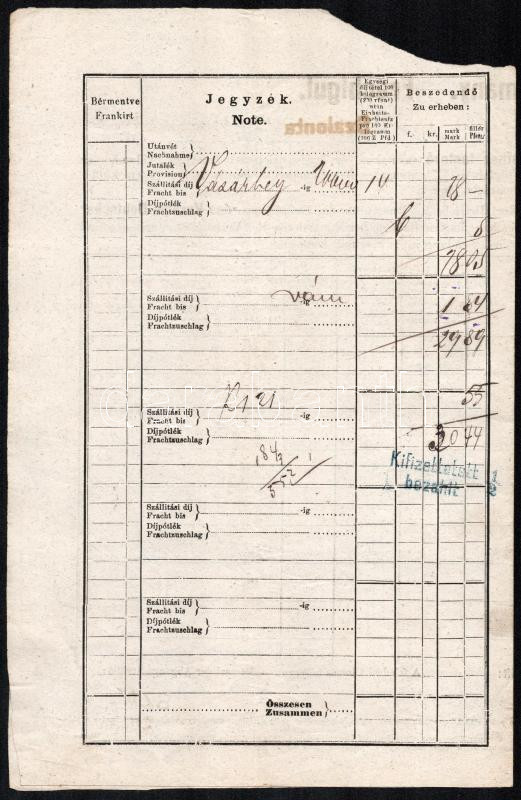 Bérmentve
Frankirt
Jegyzék.
Note.
Egységi
díjtétel 100
kilogramm
után
Einheits-
Frachtsatz
per 100 Ki-
logramm
Beszedendő
Zu erheben :
f. kr. mark
Mark fillér
Pfenn.
szalonta
Utánvét
Nachnahme
Jutalék
Provision
Szállítási díj
Fracht bis Vásárhely -ig 14 28 —
Díjpótlék
Frachtzuschlag
5
28 05
Szállítási díj
Fracht bis vám -ig 1 84
Díjpótlék
Frachtzuschlag
29 89
55
Szállítási díj
Fracht bis -ig
Díjpótlék
Frachtzuschlag
30 44
Kifizettetett
bezahlt
Szállítási díj
Fracht bis -ig
Díjpótlék
Frachtzuschlag
Szállítási díj
Fracht bis -ig
Díjpótlék
Frachtzuschlag
Összesen
Zusammen